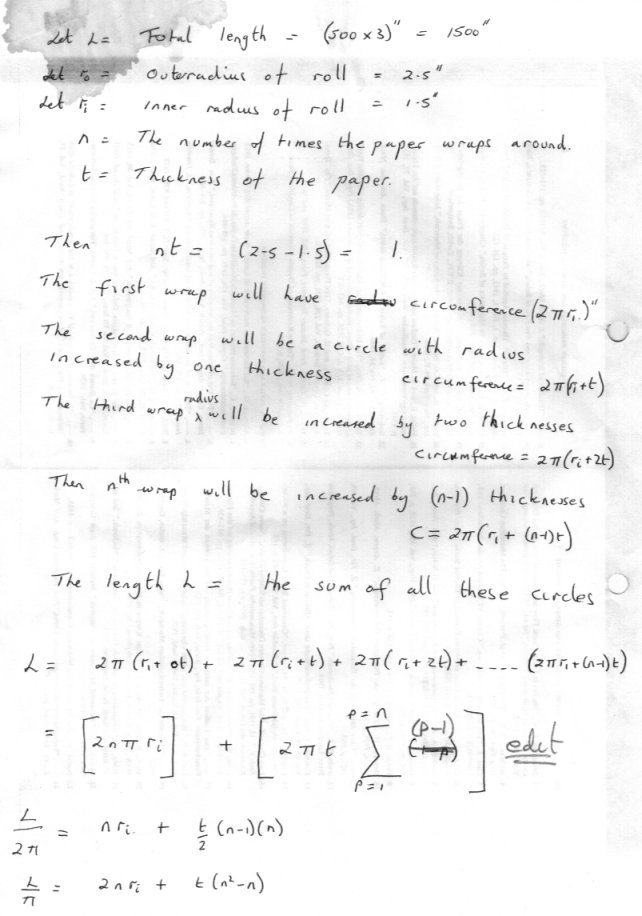 Let L = Total length = (500 x 3)" = 1500"
Let r₀ = Outerradius of roll = 2.5"
Let rᵢ = inner radius of roll = 1.5"
n = The number of times the paper wraps around.
t = Thickness of the paper.
Then nt = (2-5 - 1.5) = 1.
The first wrap will have circumference (2πrᵢ)"
The second wrap will be a circle with radius
increased by one thickness circumference = 2π(rᵢ+t)
The third wrap radius will be increased by two thicknesses
circumference = 2π(rᵢ+2t)
Then nth wrap will be increased by (n-1) thicknesses
C = 2π(rᵢ + (n-1)t)
The length L = the sum of all these circles
L = 2π (rᵢ + 0t) + 2π (rᵢ+t) + 2π( rᵢ+2t) + ---- (2πrᵢ+(n-1)t)
= [2nπ rᵢ] + [2πt Σ p=1 p=n (p-1)] edit
L/2π = nrᵢ + t/2 (n-1)(n)
L/π = 2nrᵢ + t (n²-n)